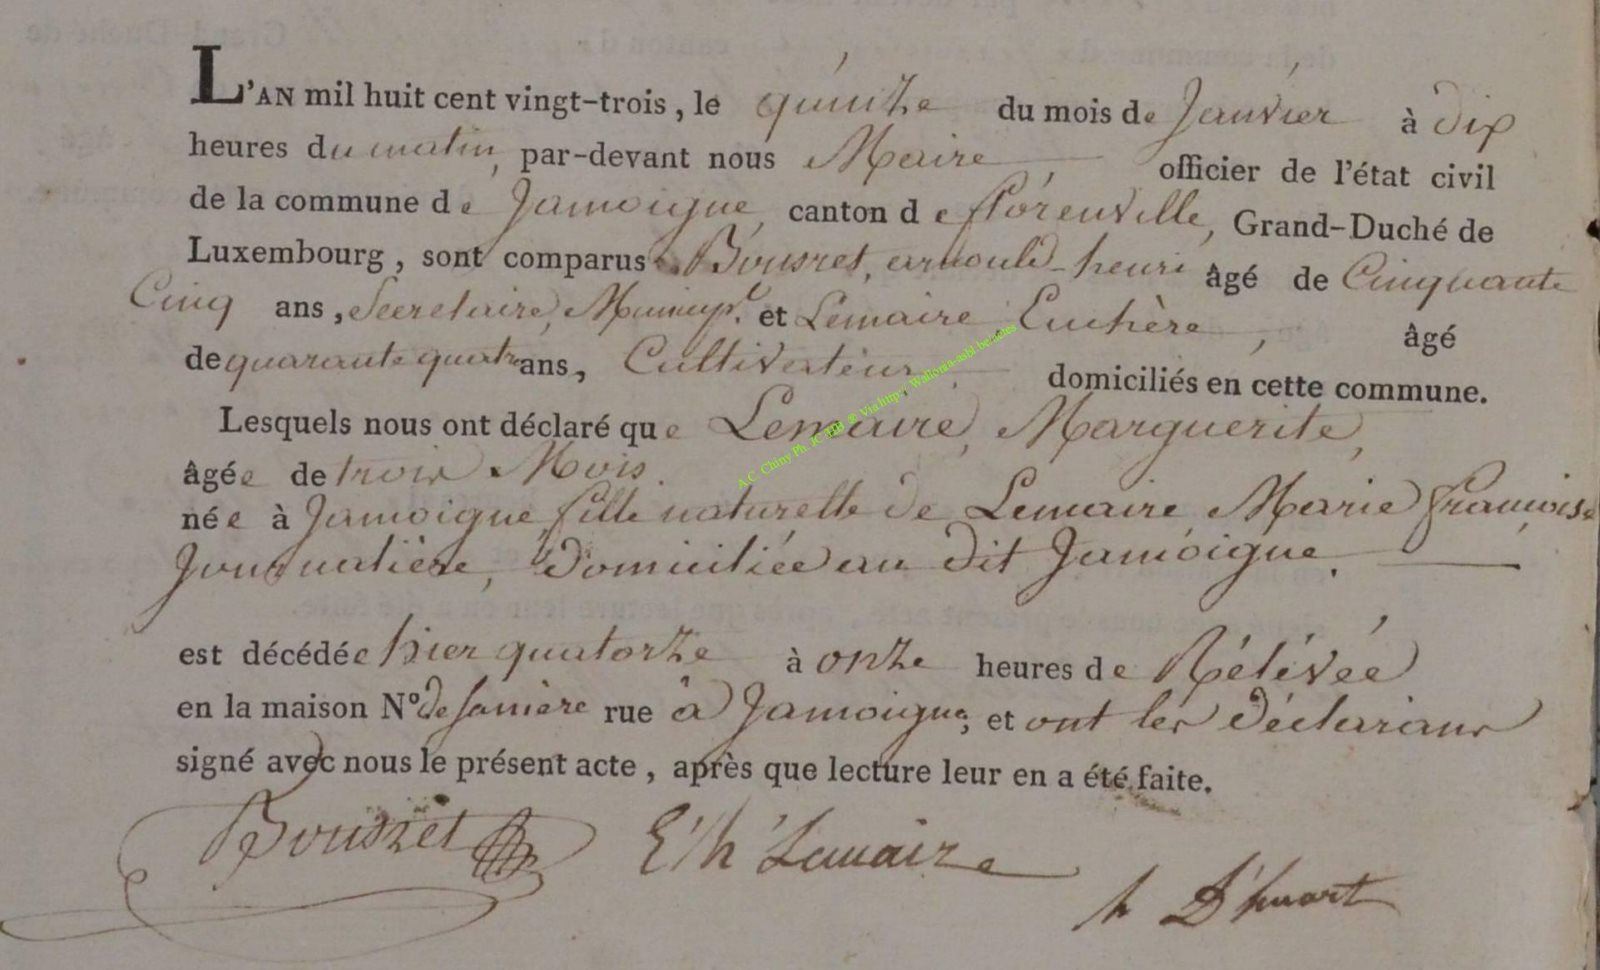 L'AN mil huit cent vingt-trois, le quinze du mois de Janvier à dix
heures du matin, par-devant nous Maire, officier de l'état civil
de la commune de Jamoigne, canton de florenville, Grand-Duché de
Luxembourg, sont comparus Bousret, arnould-henri âgé de Cinquante
Cinq ans, Secretaire, Municip.l et Lemaire, Euchère, âgé
de quarante quatre ans, Cultivateur. domiciliés en cette commune.
Lesquels nous ont déclaré que Lemaire, Marguerite,
âgée de trois Mois.
née à Jamoigne, fille naturelle de Lemaire Marie françoise
Journalière, domiciliée au dit Jamoigne.
est décédée hier quatorze à onze heures de Rélévée
en la maison N° de rue à Jamoigne, et ont les déclarans
signé avec nous le présent acte, après que lecture leur en a été faite.
Bousret E'h' Lemaire
h D'huart
A.C Chiny Ph. JC HB @ Via http:// Wallonia-asbl.be/actes